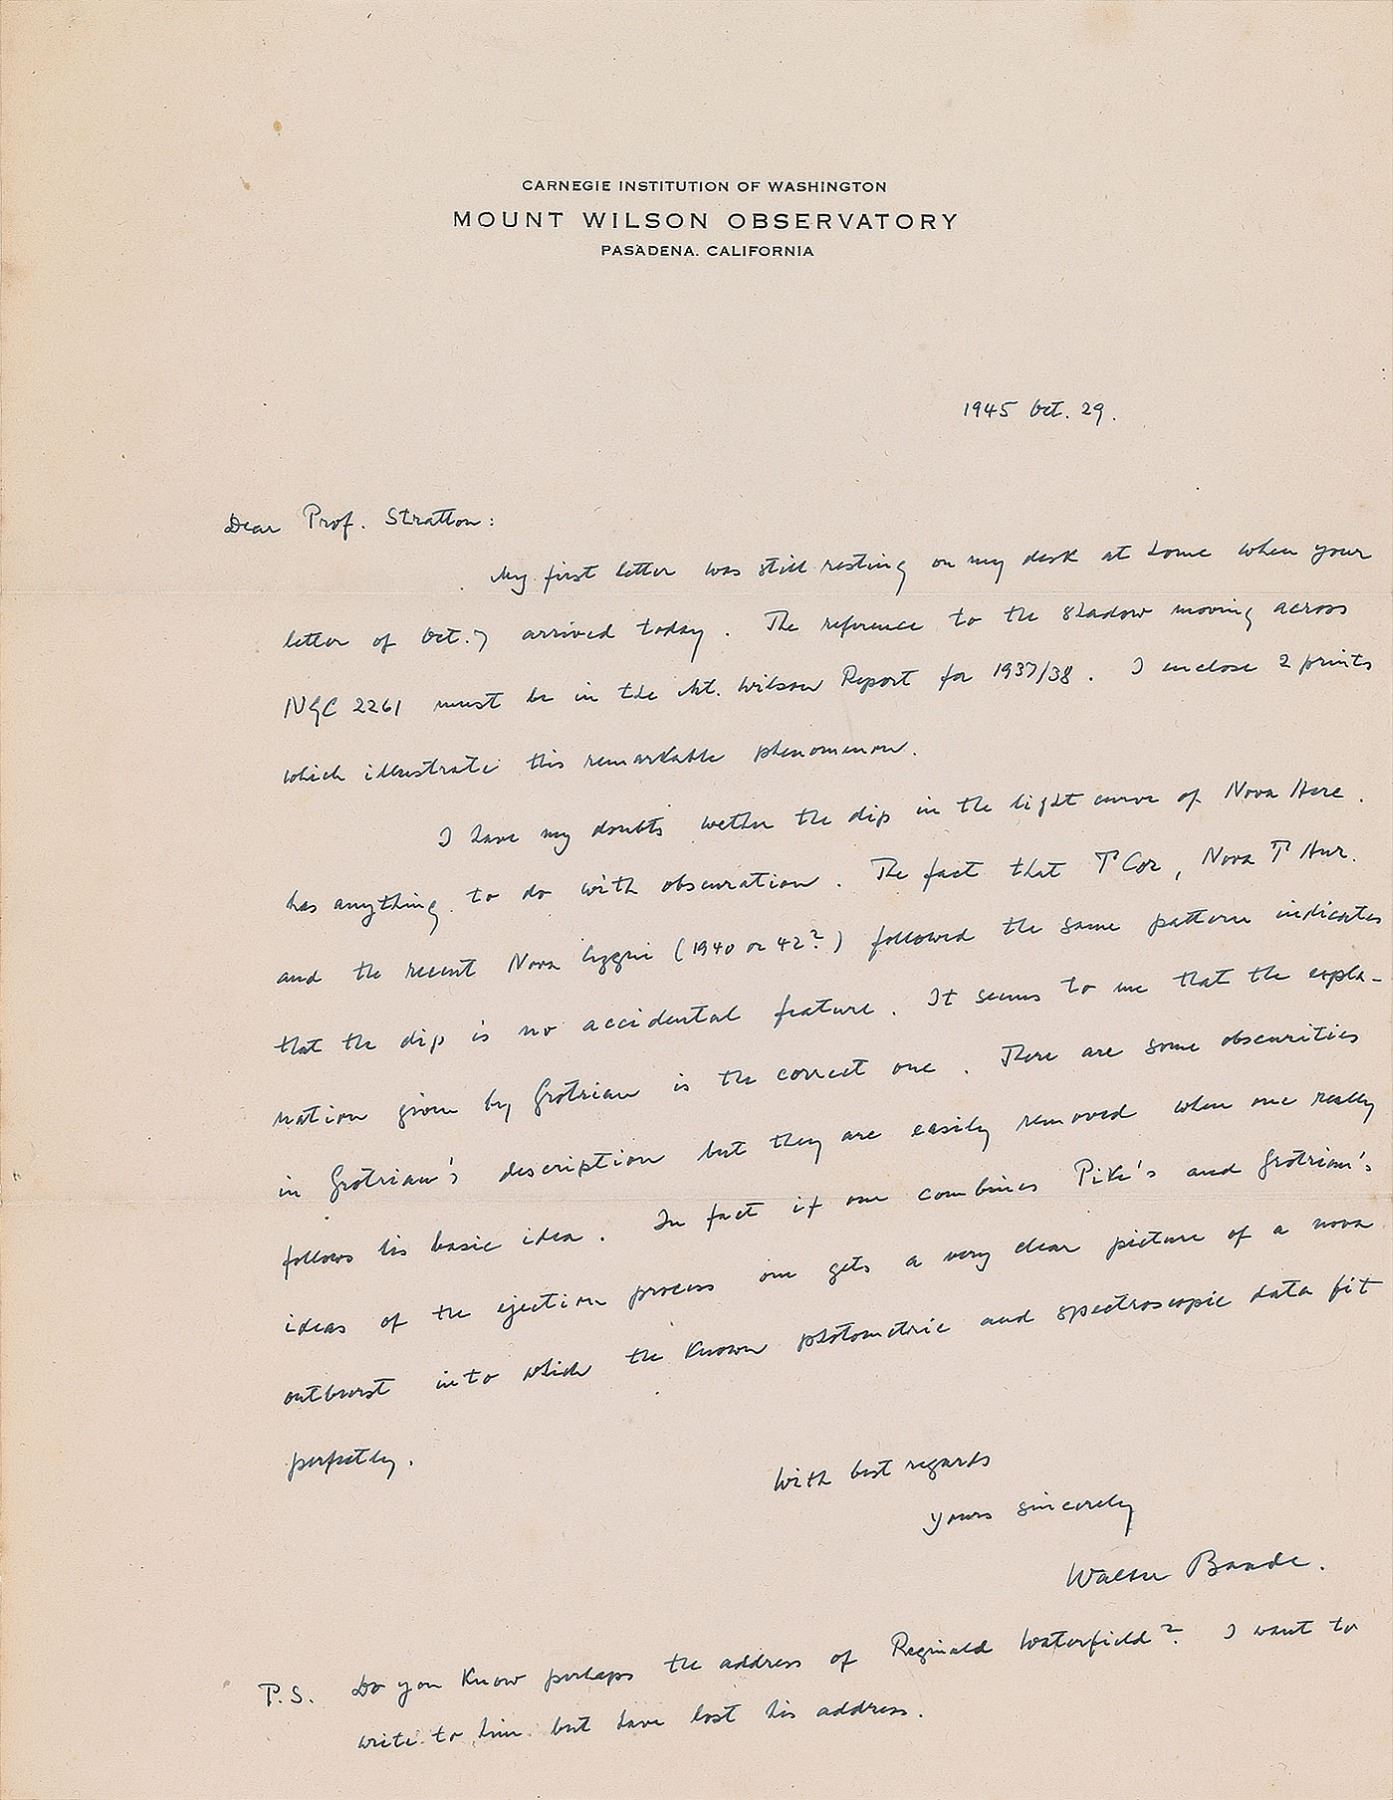 CARNEGIE INSTITUTION OF WASHINGTON
MOUNT WILSON OBSERVATORY
PASADENA. CALIFORNIA
1945 Oct. 29.
Dear Prof. Stratton:
My first letter was still resting on my desk at home when your
letter of Oct. 7 arrived today. The reference to the shadow moving across
NGC 2261 must be in the Mt. Wilson Report for 1937/38. I enclose 2 prints
which illustrate this remarkable phenomenon.
I have my doubts wether the dip in the light curve of Nova Herc.
has anything to do with obscuration. The fact that T Cor, Nova T Aur.
and the recent Nova (1940 or 42?) followed the same pattern indicates
that the dip is no accidental feature. It seems to me that the expla-
nation given by Grotrian is the correct one. There are some obscurities
in Grotrian's description but they are easily removed when one really
follows his basic idea. In fact if one combines Pike's and Grotrian's
ideas of the ejection process one gets a very clear picture of a nova
outburst into which the known photometric and spectroscopic data fit
perfectly.
With best regards
yours sincerely
Walter Baade.
P.S. Do you know perhaps the address of Reginald Waterfield? I want to
write to him but have lost his address.